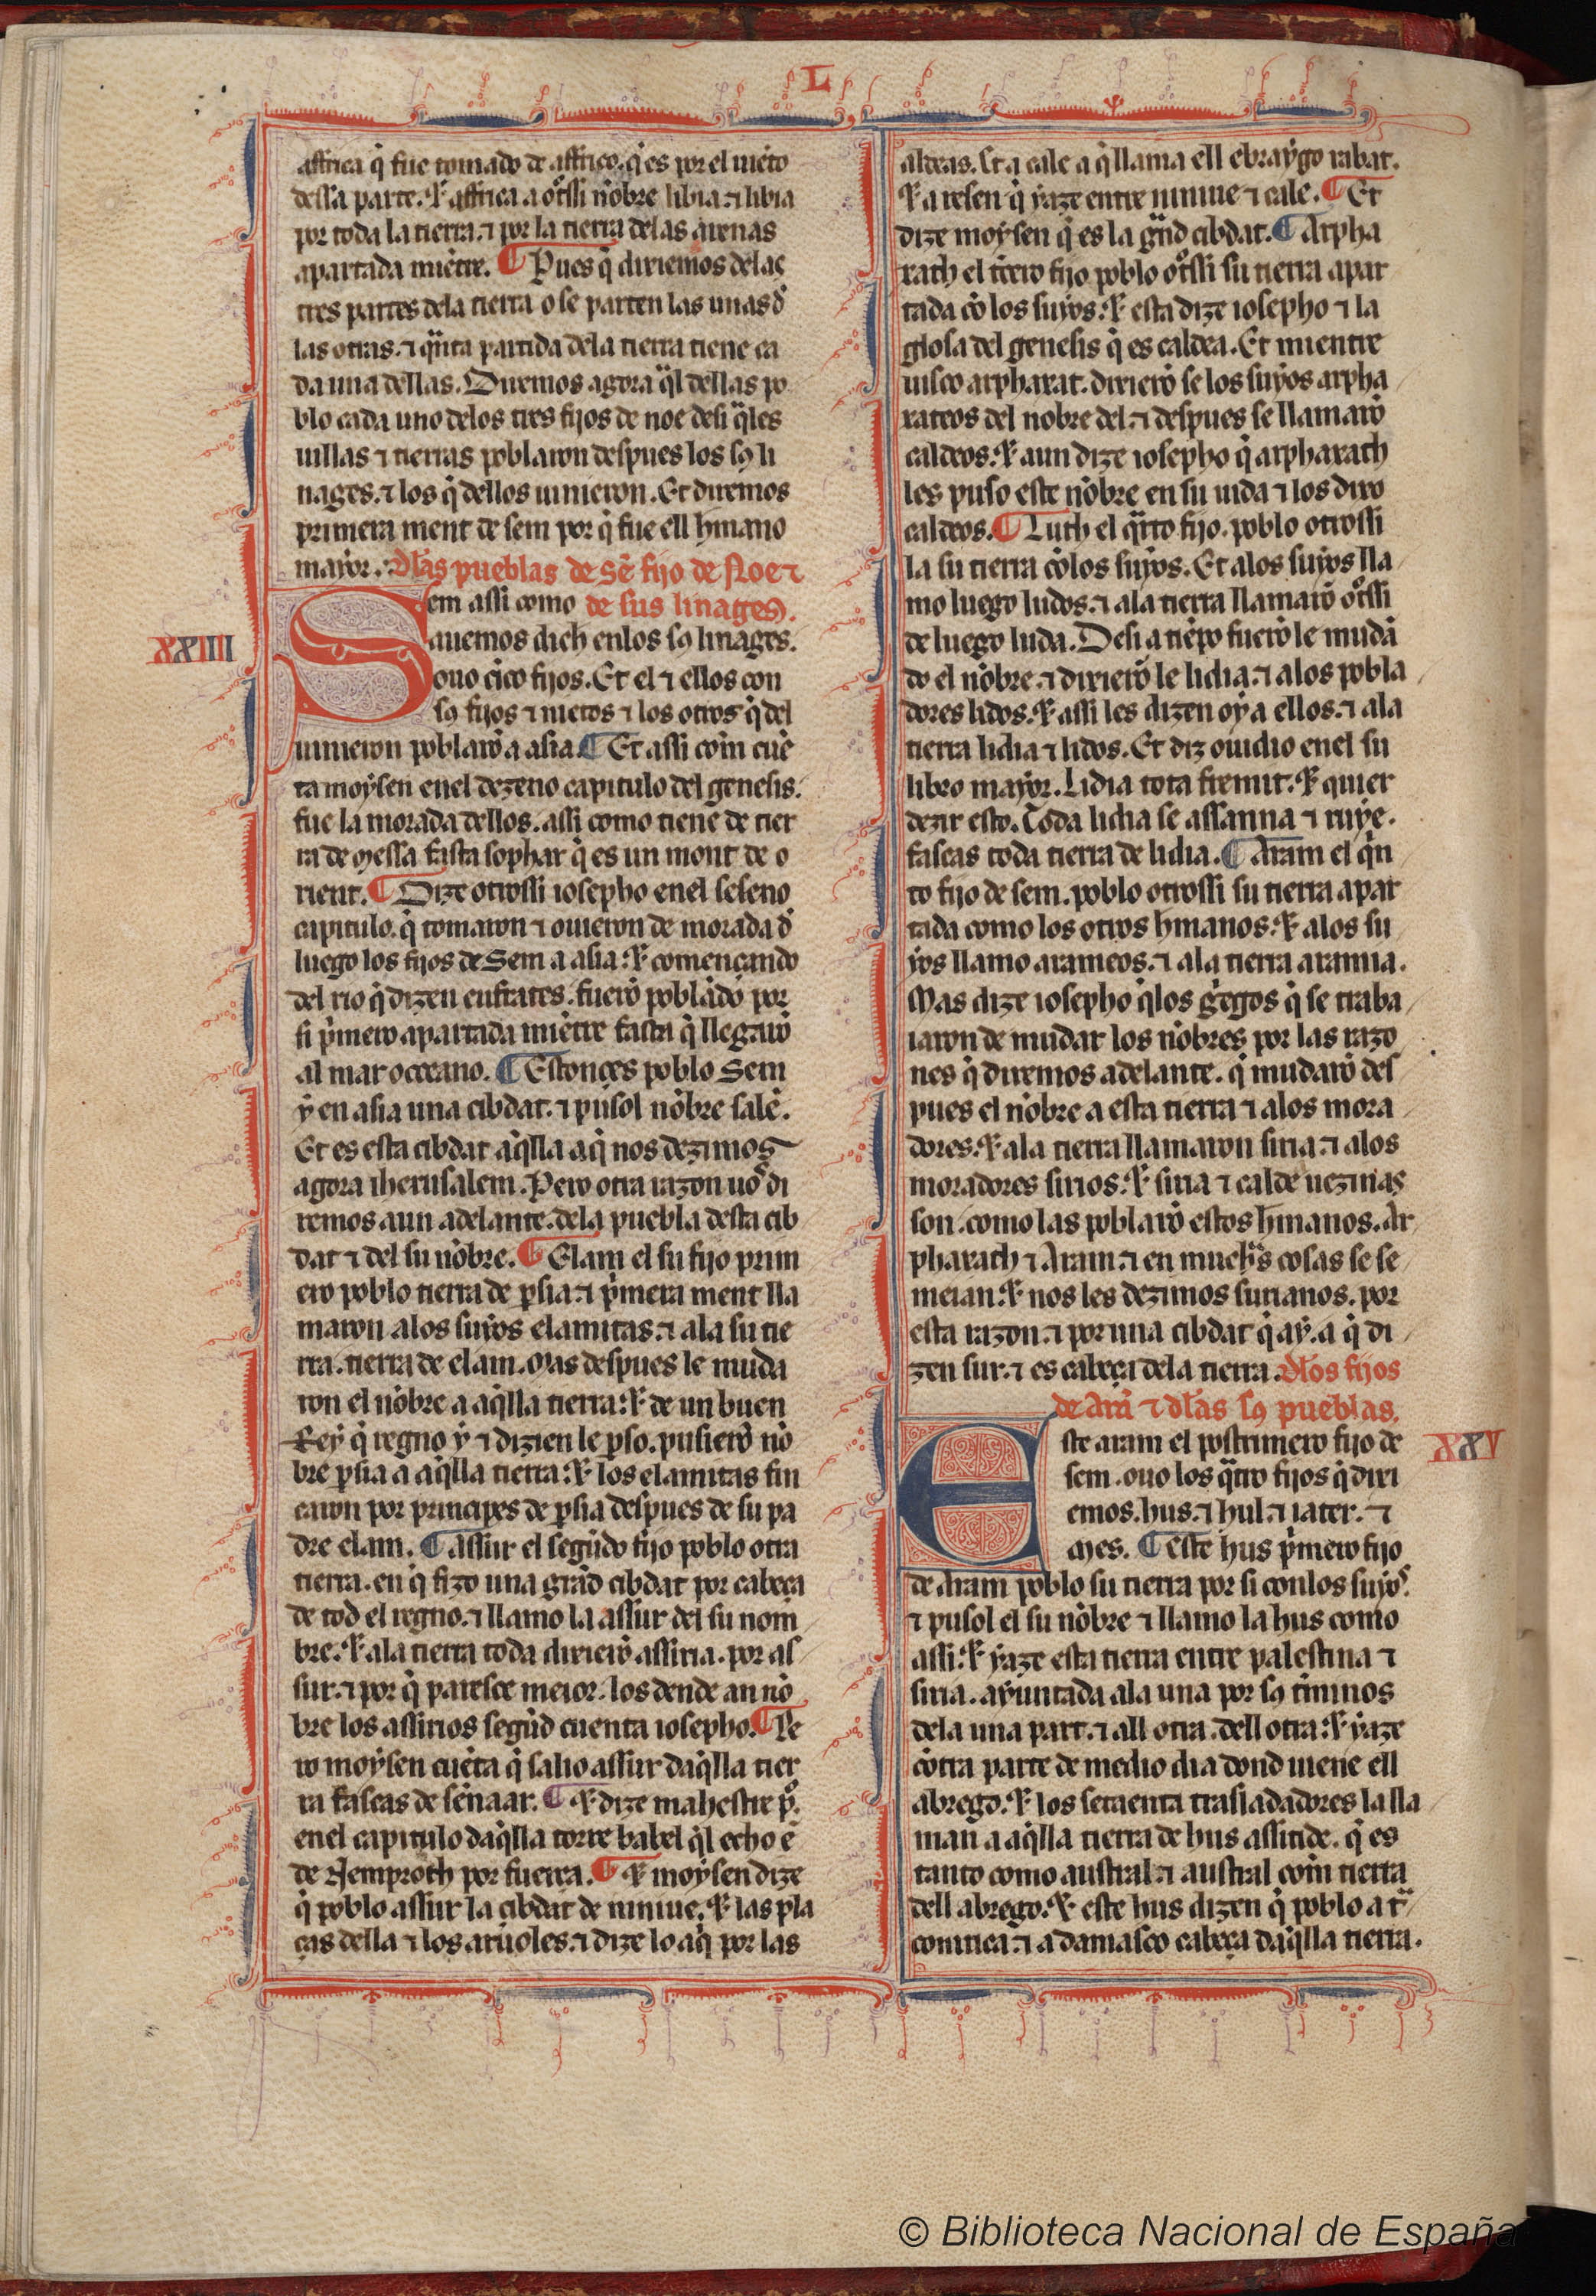 L
affrica q̃ fue tomado de affrico. q̃ es por el uiẽto
dessa parte. Et affrica a ot͂ssi nõbre libia. ⁊ libia
por toda la tierra. ⁊ por la tierra delas arenas
apartada miẽtre. ¶ Pues q̃ dixiemos delas
tres partes dela tierra o se parten las unas d̃
las otras. ⁊ q̃nta partida dela tierra tiene ca
da una dellas. Diremos agora q̃l dellas po
blo cada uno delos tres fijos de noe desi q̃les
uillas ⁊ tierras poblaron despues los sꝯ li
nages. ⁊ los q̃ dellos uinieron. Et diremos
primera ment de sem por q̃ fue ell hmano
mayor. dl̃as pueblas de Sẽ fijo de Noe ⁊
de sus linages.
XXIIII
Sem assi como
auemos dich enlos sꝯ linages.
ouo cĩco fijos. Et el ⁊ ellos con
sꝯ fijos ⁊ nietos ⁊ los otros q̃ del
uinieron poblarõ a asia. ¶ Et assi com̃ cuẽ
ta moysen enel dezeno capitulo del genesis.
fue la morada dellos. assi como tiene de tier
ra de messa fasta sophar q̃ es un mont de o
rient. ¶ Dize otrossi iosepho enel seseno
capitulo. q̃ tomaron ⁊ ouieron de morada d̃
luego los fijos de Sem a asia. Et començando
del rio q̃ dizen eufrates. fuerõ poblãdo por
si p̃mero apartada miẽtre fasta q̃ llegarõ
al mar occeano. ¶ Estonces poblo Sem
y en asia una cibdat. ⁊ pusol nõbre salẽ.
Et es esta cibdat aq̃lla aq̃ nos dezimos
agora iherusalem. Pero otra razon uos di
remos aun adelante. dela puebla desta cib
dat ⁊ del su nõbre. ¶ Elam el su fijo prim
ero poblo tierra de p̱sia. ⁊ p̃mera ment lla
maron alos suyos elamitas. ⁊ ala su tie
rra. tierra de elam. Mas despues le muda
ron el nõbre a aq̃lla tierra. Et de un buen
Rey q̃ regno y ⁊ dizien le p̱so. pusierõ nõ
bre p̱sia a aq̃lla tierra. Et los elamitas fin
caron por principes de p̱sia despues de su pa
dre elam. ¶ assur el segũdo fijo poblo otra
tierra. en q̃ fizo una grãd cibdat por cabeça
de tod el regno. ⁊ llamo la assur del su nom
bre. Et ala tierra toda dixierõ assiria. por as
sur. ⁊ por q̃ paresce meior. los dende an nõ
bre los assirios segũd cuenta iosepho. ¶ Pe
ro moysen cuẽta q̃ salio assur daq̃lla tier
ra fascas de sẽnaar. ¶ Et dize mahestre p̊.
enel capitulo daq̃lla torre babel q̃l echo ẽ
de Nemproth por fuerra. ¶ Et moysen dize
q̃ poblo assur la cibdat de niniue. Et las pla
ças della ⁊ los aruoles. ⁊ dize lo aq̃ por las
aldeas. Et a cale a q̃ llama ell ebraygo rabat.
Et a resen q̃ yaze entre niniue ⁊ cale. ¶ Et
dize moysen q̃ es la gñd cibdat. ¶ Arpha
xath el tẽrero fijo poblo ot͂ssi su tierra apar
tada cõ los suyos. Et esta dize iosepho ⁊ la
glosa del genesis q̃ es caldea. Et mientre
uisco arphaxat. dixierõ se los suyos arpha
xateos del nobre del. ⁊ despues se llamarõ
caldeos. Et aun dize iosepho q̃ arphaxath
les puso este nõbre en su uida ⁊ los dixo
caldeos. ¶ Luth el q̃rto fijo. poblo otrossi
la su tierra cõlos suyos. Et alos suyos lla
mo luego ludos. ⁊ ala tierra llamarõ ot͂ssi
de luego luda. Desi a tiẽpo fuerõ le mudã
do el nõbre. ⁊ dixierõ le lidia. ⁊ alos pobla
dores lidos. Et assi les dizen oy a ellos. ⁊ ala
tierra lidia ⁊ lidos. Et diz ouidio enel su
libro mayor. Lidia tota fremit. Et quier
dezir esto. Toda lidia se assanna ⁊ ruye.
fascas toda tierra de lidia. ¶ Aram el q̃n
to fijo de sem. poblo otrossi su tierra apar
tada como los otros hmanos. Et alos su
yos llamo arameos. ⁊ ala tierra aramia.
Mas dize iosepho q̃los g̃egos q̃ se traba
iaron de mudar los nõbres por las razo
nes q̃ diremos adelante. q̃ mudarõ des
pues el nõbre a esta tierra ⁊ alos mora
dores. Et ala tierra llamaron siria. ⁊ alos
moradores sirios. Et siria ⁊ calde uezinas
son. como las poblarõ estos hmanos. Ar
phaxath ⁊ Aram. ⁊ en much̃s cosas se se
meian. Et nos les dezimos surianos. por
esta razon. ⁊ por una cibdat q̃ ay. a q̃ di
zen sur. ⁊ es cabeça dela tierra. dl̃os fijos
de Arã ⁊ dl̃as sꝯ pueblas.
XXV
Este aram el postrimero fijo de
sem. ouo los q̃tro fijos q̃ dixi
emos. hus. ⁊ hul. ⁊ iater. ⁊
mes. ¶ este hus p̃mero fijo
de Aram poblo su tierra por si conlos suyos.
⁊ pusol el su nõbre ⁊ llamo la hus como
assi. Et yaze esta tierra entre palestina ⁊
siria. ayuntada ala una por sꝯ tĩminos
dela una part. ⁊ all otra. dell otra. Et yaze
cõtra parte de medio dia dond uiene ell
abrego. Et los setaenta trasladadores la lla
man a aq̃lla tierra de hus assitide. q̃ es
tanto como austral. ⁊ austral com̃ tierra
dell abrego. Et este hus dizen q̃ poblo a t̃
conitica. ⁊ a damasco cabeça daq̃lla tierra.
© Biblioteca Nacional de España